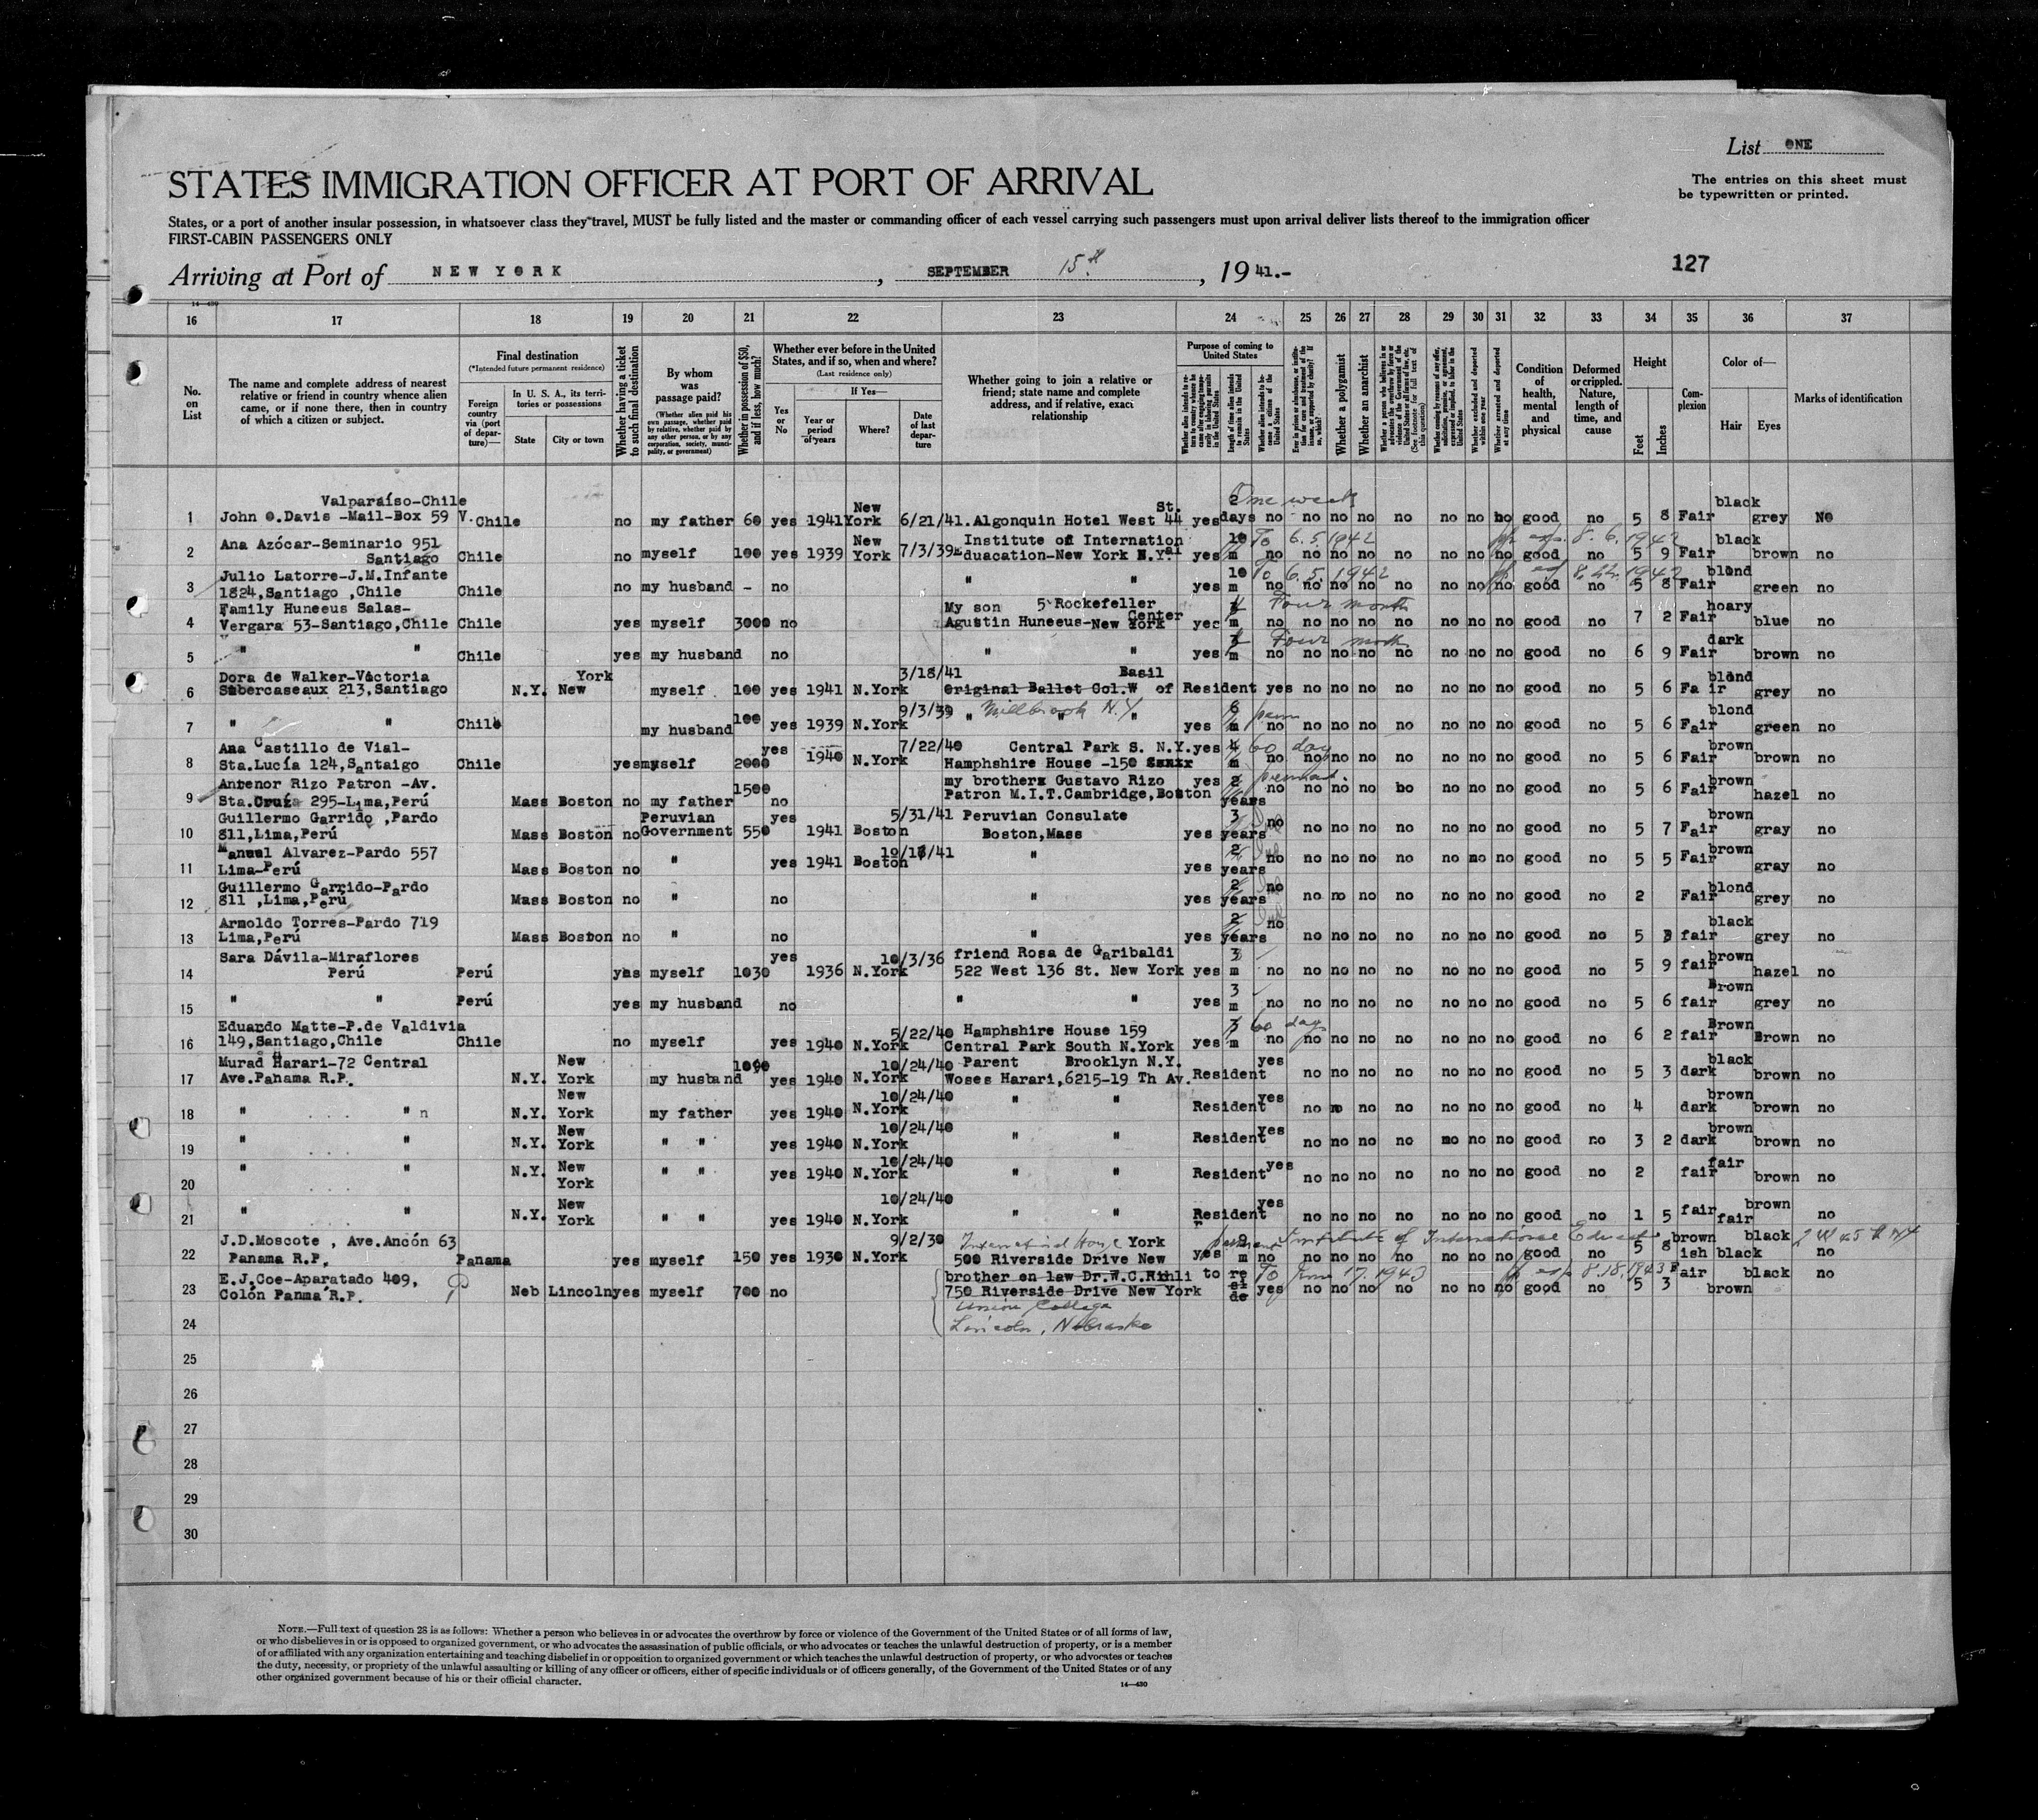 List ONE
STATES IMMIGRATION OFFICER AT PORT OF ARRIVAL
The entries on this sheet must
be typewritten or printed.
States, or a port of another insular possession, in whatsoever class they travel, MUST be fully listed and the master or commanding officer of each vessel carrying such passengers must upon arrival deliver lists thereof to the immigration officer
FIRST-CABIN PASSENGERS ONLY
Arriving at Port of NEW YORK, SEPTEMBER 15th, 1941.-
127
14-430
16 17 18 19 20 21 22 23 24 25 26 27 28 29 30 31 32 33 34 35 36 37
No. on List
The name and complete address of nearest relative or friend in country whence alien came, or if none there, then in country of which a citizen or subject.
Final destination
(*Intended future permanent residence)
Foreign country via (port of departure)—
In U. S. A., its territories or possessions
State
City or town
Whether having a ticket to such final destination
By whom was passage paid?
(Whether alien paid his own passage, whether paid by relative, whether paid by any other person, or by any corporation, society, municipality, or government)
Whether in possession of $50, and if less, how much?
Whether ever before in the United States, and if so, when and where?
(Last residence only)
Yes or No
If Yes—
Year or period of years
Where?
Date of last departure
Whether going to join a relative or friend; state name and complete address, and if relative, exact relationship
Purpose of coming to United States
Length of time alien intends to remain in the United States
Whether alien intends to become a citizen of the United States
Whether a polygamist
Whether an anarchist
Whether arrested and deported at any time
Condition of health, mental and physical
Deformed or crippled. Nature, length of time, and cause
Height
Feet
Inches
Complexion
Color of—
Hair
Eyes
Marks of identification
Valparaíso-Chile New St. 2 One week black
1 John O.Davis -Mail-Box 59 V. Chile no my father 60 yes 1941 York 6/21/41. Algonquin Hotel West 44 yes days no no no no no no no no good no 5 8 Fair grey No
Ana Azócar-Seminario 951 New Institute of International 10 To 6.5.1942 8.6.1942 black
2 Santiago Chile no myself 100 yes 1939 York 7/3/39 Education-New York N.Y. yes m no no no no no no no no good no 5 9 Fair brown no
Julio Latorre-J.M.Infante " " 10 To 6.5.1942 1942 blond
3 1824,Santiago ,Chile Chile no my husband - no yes m no no no no no no no no good no 5 8 Fair green no
Family Huneeus Salas- My son 5 Rockefeller Center Four month hoary
4 Vergara 53-Santiago,Chile Chile yes myself 3000 no Agustin Huneeus-New York yec m no no no no no no no no good no 7 2 Fair blue no
" " Four month dark
5 Chile yes my husband no " " yes m no no no no no no no no good no 6 9 Fair brown no
Dora de Walker-Victoria York 3/18/41 Basil blond
6 Subercaseaux 213,Santiago N.Y. New myself 100 yes 1941 N.York Original Ballet Col.W of Resident yes no no no no no no no good no 5 6 Fa ir grey no
" " 9/3/39 Millbrook N.Y. 6 blond
7 Chile my husband 100 yes 1939 N.York " " " yes m no no no no no no no no good no 5 6 Fair green no
Ana Castillo de Vial- yes 7/22/40 Central Park S. N.Y. yes 4 60 day brown
8 Sta.Lucía 124,Santaigo Chile yes myself 2000 1940 N.York Hamphshire House -150 m no no no no no no no no good no 5 6 Fair brown no
Antenor Rizo Patron -Av. 1500 my brother Gustavo Rizo yes 2 brown
9 Sta.Cruz 295-Lima,Perú Mass Boston no my father no Patron M.I.T.Cambridge,Boston years no no no no bo no no no good no 5 6 Fair hazel no
Guillermo Garrido ,Pardo Peruvian yes 5/31/41 Peruvian Consulate 3 no brown
10 811,Lima,Perú Mass Boston no Government 550 1941 Boston Boston,Mass yes years no no no no no no no good no 5 7 Fair gray no
Manuel Alvarez-Pardo 557 " 41 " 2 brown
11 Lima-Perú Mass Boston no yes 1941 Boston yes years no no no no no no mo no good no 5 5 Fair gray no
Guillermo Garrido-Pardo 2 no blond
12 811 ,Lima,Perú Mass Boston no " no " yes years no no no no no no no good no 2 Fair grey no
Arnoldo Torres-Pardo 719 2 no black
13 Lima,Perú Mass Boston no " no " yes years no no no no no no no good no 5 3 fair grey no
Sara Dávila-Miraflores yes 10/3/36 friend Rosa de Garibaldi 3 brown
14 Perú Perú yes myself 1030 1936 N.York 522 West 136 St. New York yes m no no no no no no no no good no 5 9 fair hazel no
" " " " 3 Brown
15 Perú yes my husband no yes m no no no no no no no no good no 5 6 fair grey no
Eduardo Matte-P.de Valdivia 5/22/40 Hamphshire House 159 60 days Brown
16 149,Santiago,Chile Chile no myself yes 1940 N.York Central Park South N.York yes m no no no no no no no no good no 6 2 fair Brown no
Murad Harari-72 Central New 1000 10/24/40 Parent Brooklyn N.Y. yes black
17 Ave.Panama R.P. N.Y. York my husband yes 1940 N.York Woses Harari,6215-19 Th Av. Resident no no no no no no no good no 5 3 dark brown no
" " n New 10/24/40 " " yes brown
18 N.Y. York my father yes 1940 N.York Resident no no no no no no no good no 4 dark brown no
" " New 10/24/40 " " yes brown
19 N.Y. York " " yes 1940 N.York Resident no no no no no no no good no 3 2 dark brown no
" " New 10/24/40 " " yes fair
20 N.Y. York " " yes 1940 N.York Resident no no no no no no no good no 2 fair brown no
" " New 10/24/40 " " yes fair brown
21 N.Y. York " " yes 1940 N.York Resident no no no no no no no good no 1 5 fair no
J.D.Moscote , Ave.Ancón 63 9/2/30 International House York Institute of International Educat brown black 2 W 45 th NY
22 Panama R.P. Panama yes myself 150 yes 1930 N.York 500 Riverside Drive New yes m no no no no no no no no good no 5 8 ish black no
E.J.Coe-Aparatado 409, brother on law Dr.W.C.Rihli to re To June 17. 1943 8.18.1943 Fair black no
23 Colón Panma R.P. Neb Lincoln yes myself 700 no 750 Riverside Drive New York si de yes no no no no no no no good no 5 3 brown
Union College
24 Lincoln, Nebraska
25
26
27
28
29
30
NOTE.—Full text of question 28 is as follows: Whether a person who believes in or advocates the overthrow by force or violence of the Government of the United States or of all forms of law,
or who disbelieves in or is opposed to organized government, or who advocates the assassination of public officials, or who advocates or teaches the unlawful destruction of property, or is a member
of or affiliated with any organization entertaining and teaching disbelief in or opposition to organized government or which teaches the unlawful destruction of property, or who advocates or teaches
the duty, necessity, or propriety of the unlawful assaulting or killing of any officer or officers, either of specific individuals or of officers generally, of the Government of the United States or of any
other organized government because of his or their official character.
14—430